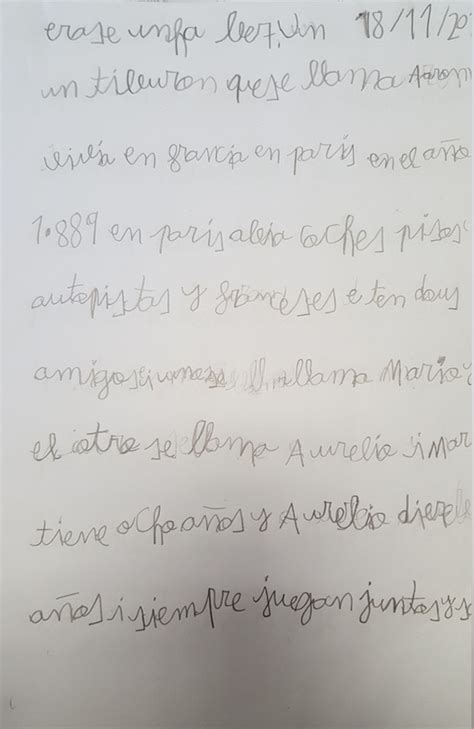 erase unfa bez un 18/11/20
un tiburon quese llama Aaron
vivía en francia en parís en el año
1.889 en parís abia coches pisos
autopistas y franceses e ten dous
amigos i uno se llama Mario i
el otro se llama Aurelio i Mar
tiene ocho años y Aurelio dieze
años i siempre juegan juntos y s